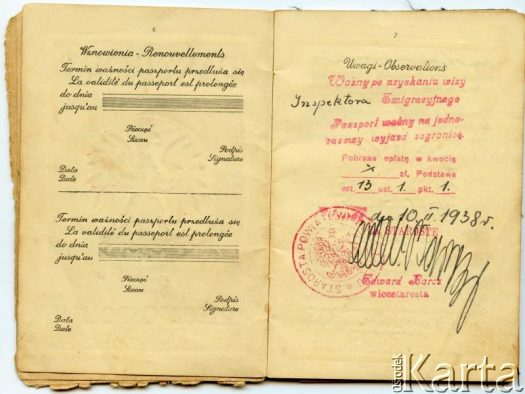 6
Wznowienia - Renouvellements
Termin ważności paszportu przedłuża się
La validité du passeport est prolongée
do dnia
jusqu'au
Pieczęć
Sceau
Podpis
Signature
Data
Date
Termin ważności paszportu przedłuża się
La validité du passeport est prolongée
do dnia
jusqu'au
Pieczęć
Sceau
Podpis
Signature
Data
Date
7
Uwagi - Observations
Ważny po uzyskaniu wizy
Inspektora Emigracyjnego
Paszport ważny na jedno-
razowy wyjazd zagranicę.
Pobrano opłatę w kwocie
x zł. Podstawa
art. 13 ust. 1. pkt. 1.
10. II 1938 r.
STAROSTĘ
STAROSTA POWIATOWY
Edward Barcz
wicestarosta
ośrodek
Karta